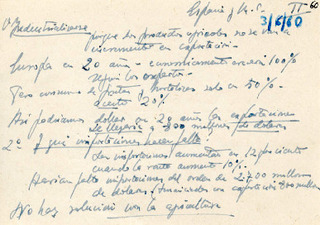 España y M.C. II 60
3/6/60
porque los productos agrícolas no se van a
incrementar en exportación -
Europa en 20 años - economicamente crecerá 100%
según los expertos -
Pero consumo de frutas y hortalizas solo en 50% -
20%
Así podíamos doblar en 20 años las exportaciones
se llegaría a 800 millones de dolares
2º Y qué importaciones hacen falta
Las importaciones aumentan en 12 por ciento
cuando la renta aumenta 10% -
Harían falta importaciones del orden de 2.700 millones
de dolares, financiados con exportación 800 millones
No hay solución con la agricultura